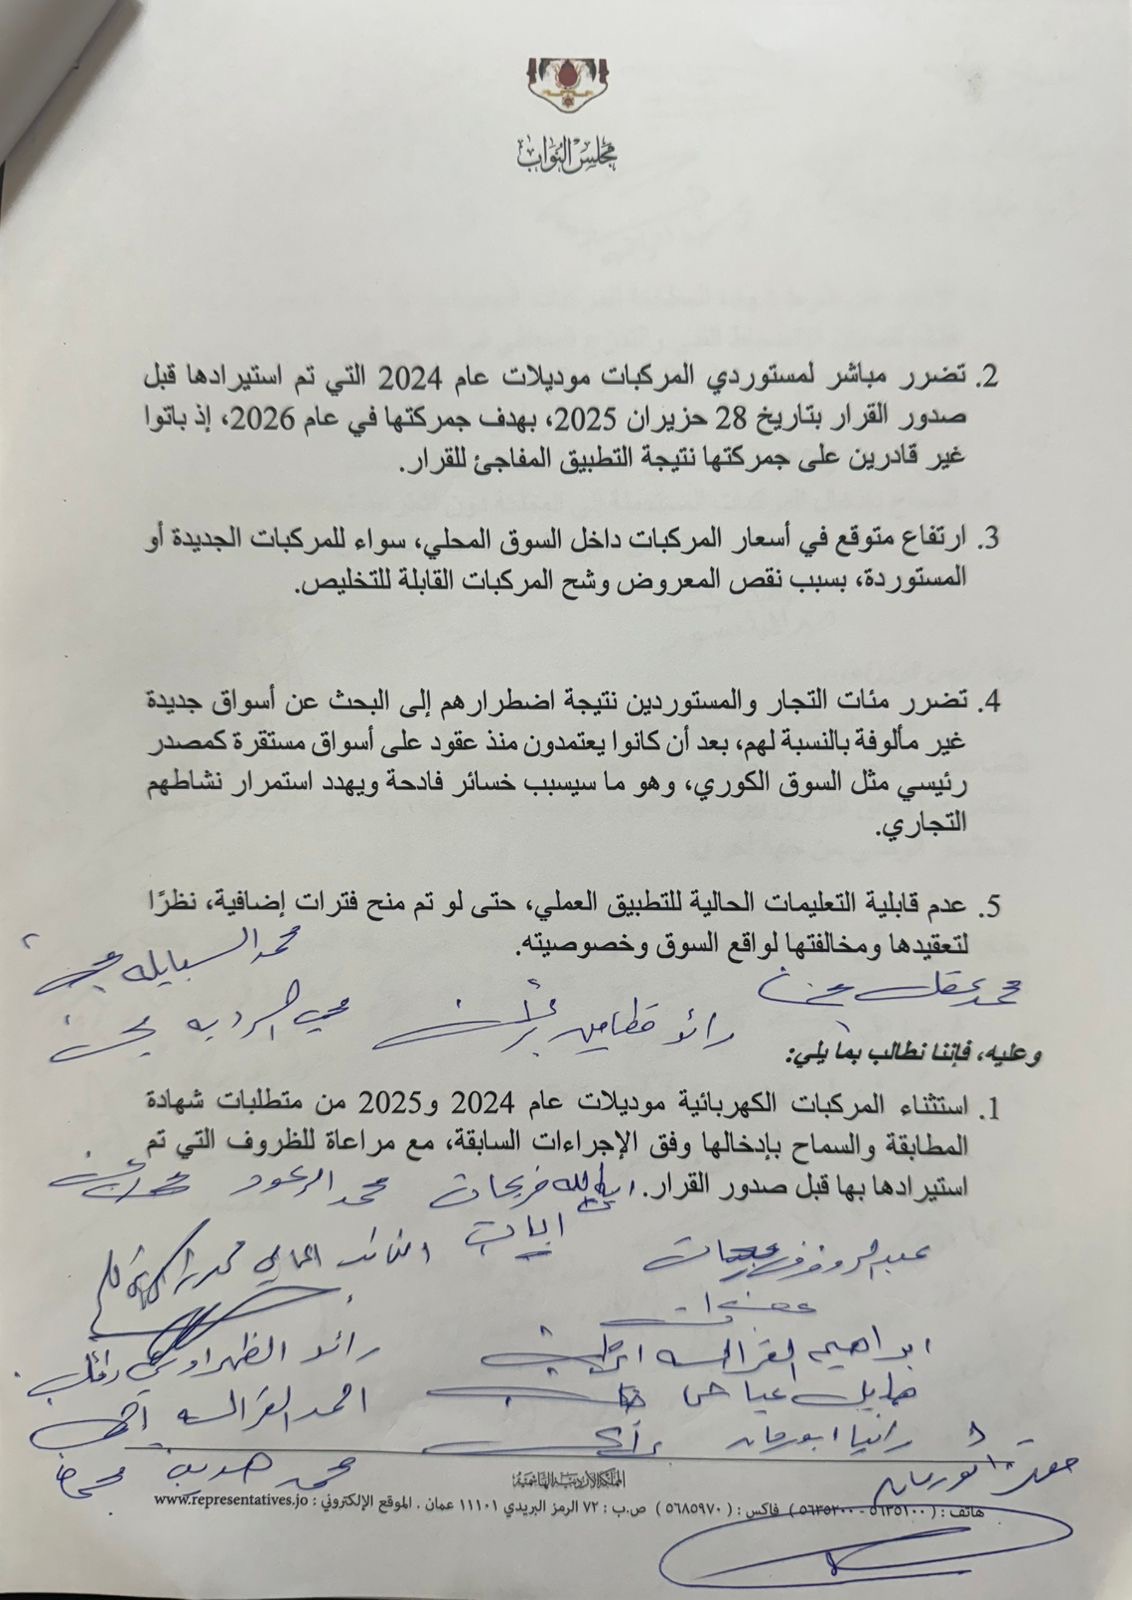 مجلس النواب
2. تضرر مباشر لمستوردي المركبات موديلات عام 2024 التي تم استيرادها قبل
صدور القرار بتاريخ 28 حزيران 2025، بهدف جمركتها في عام 2026، إذ باتوا
غير قادرين على جمركتها نتيجة التطبيق المفاجئ للقرار.
3. ارتفاع متوقع في أسعار المركبات داخل السوق المحلي، سواء للمركبات الجديدة أو
المستوردة، بسبب نقص المعروض وشح المركبات القابلة للتخليص.
4. تضرر مئات التجار والمستوردين نتيجة اضطرارهم إلى البحث عن أسواق جديدة
غير مألوفة بالنسبة لهم، بعد أن كانوا يعتمدون منذ عقود على أسواق مستقرة كمصدر
رئيسي مثل السوق الكوري، وهو ما سيسبب خسائر فادحة ويهدد استمرار نشاطهم
التجاري.
5. عدم قابلية التعليمات الحالية للتطبيق العملي، حتى لو تم منح فترات إضافية، نظرًا
لتعقيدها ومخالفتها لواقع السوق وخصوصيته.
محمد السبايله
محمد عقل
رائد قطامين
وعليه، فإننا نطالب بما يلي:
1. استثناء المركبات الكهربائية موديلات عام 2024 و2025 من متطلبات شهادة
المطابقة والسماح بإدخالها وفق الإجراءات السابقة، مع مراعاة للظروف التي تم
استيرادها بها قبل صدور القرار.
فريحات محمد الرعود
رائد الظهراوي
ابراهيم القرالسه
احمد القرالسه
رانيا ابورمان
محمد هديب
المملكة الأردنية الهاشمية
هاتف : ( ٥٦٣٥١٠٠ - ٥٦٣٥٢٠٠ ) فاكس : ( ٥٦٨٥٩٧٠ ) ص.ب : ٧٢ الرمز البريدي ١١١٠١ عمان . الموقع الإلكتروني : www.representatives.jo